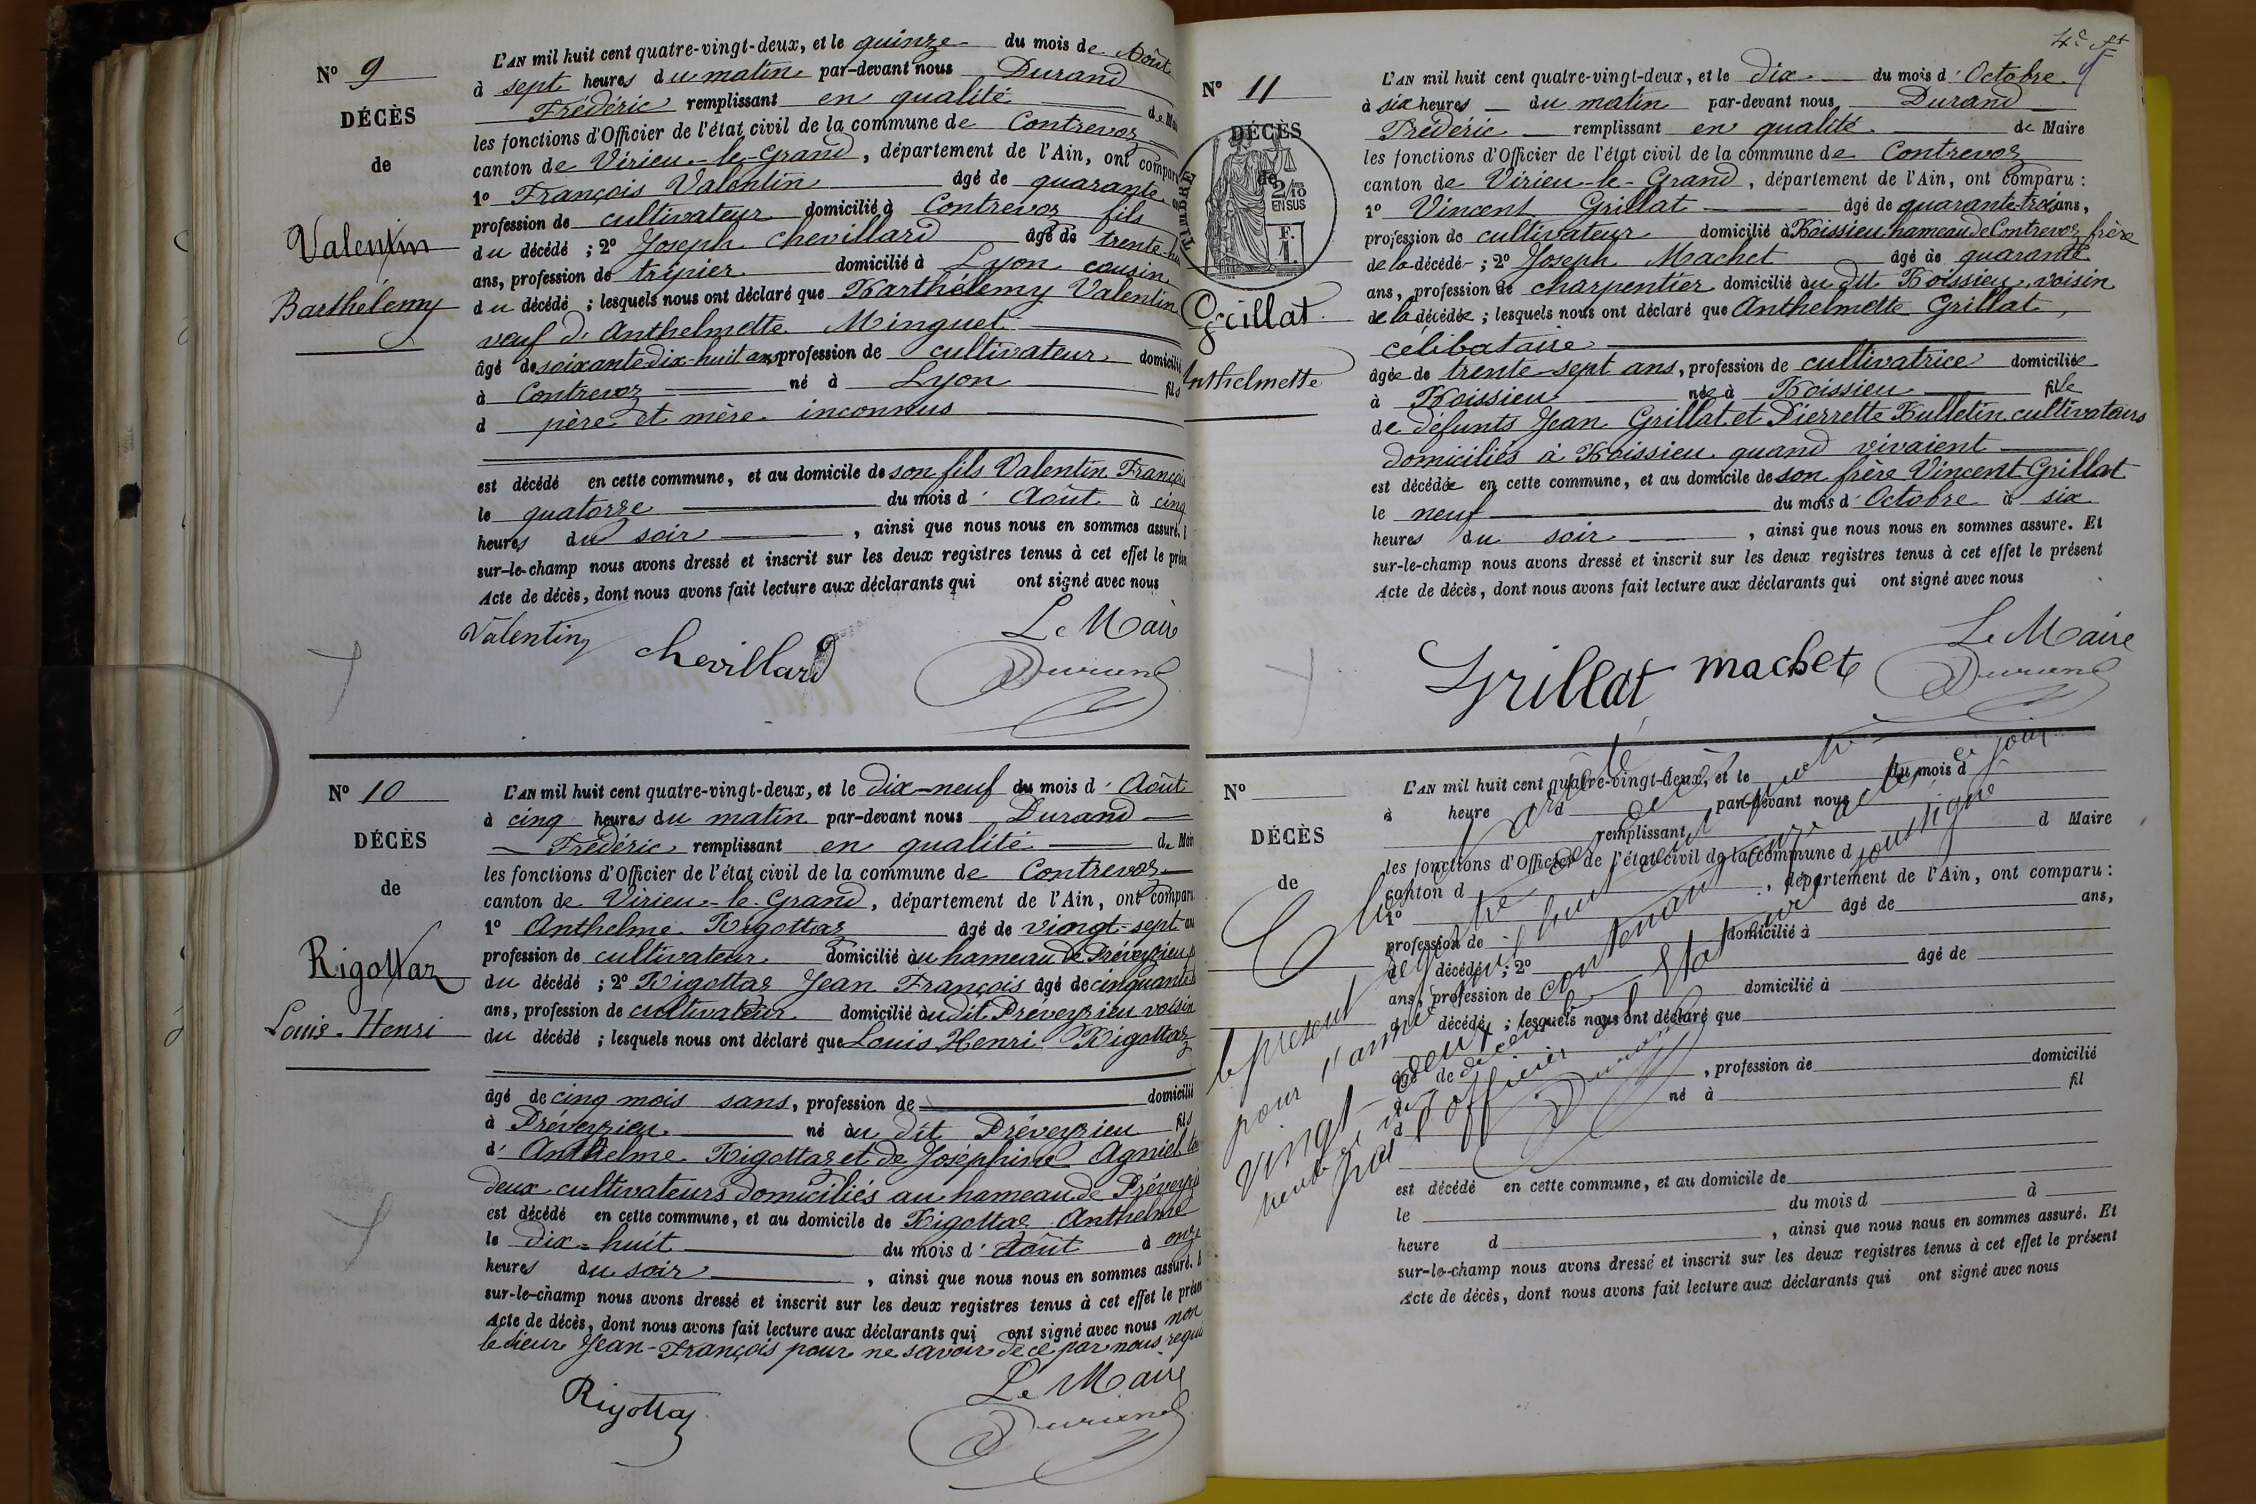 N° 9
DÉCÈS
de
Valentin
Barthélemy
L'AN mil huit cent quatre-vingt-deux, et le quinze du mois de Août
à sept heures du matin par-devant nous Durand
Frédéric remplissant en qualité de Mai
les fonctions d'Officier de l'état civil de la commune de Contrevoz
canton de Virieu-le-Grand, département de l'Ain, ont compar
1° François Valentin âgé de quarante
profession de cultivateur domicilié à Contrevoz fils
du décédé ; 2° Joseph Chevillard âgé de trente-hu
ans, profession de tripier domicilié à Lyon cousin
du décédé ; lesquels nous ont déclaré que Barthélemy Valentin
veuf d'Anthelmette Minguet
âgé de soixante-dix-huit ans profession de cultivateur domicilié
à Contrevoz né à Lyon fils
d père et mère inconnus
est décédé en cette commune, et au domicile de son fils Valentin François
le quatorze du mois d'Août à cinq
heures du soir, ainsi que nous nous en sommes assuré. E
sur-le-champ nous avons dressé et inscrit sur les deux registres tenus à cet effet le prése
Acte de décès, dont nous avons fait lecture aux déclarants qui ont signé avec nous
Valentin Chevillard Le Maire
Durand
N° 10
DÉCÈS
de
Rigottaz
Louis-Henri
L'AN mil huit cent quatre-vingt-deux, et le dix-neuf du mois d'Août
à cinq heures du matin par-devant nous Durand
Frédéric remplissant en qualité de Mai
les fonctions d'Officier de l'état civil de la commune de Contrevoz
canton de Virieu-le-Grand, département de l'Ain, ont compar
1° Anthelme Rigottaz âgé de vingt-sept an
profession de cultivateur domicilié au hameau de Préveyzieu
du décédé ; 2° Rigottaz Jean François âgé de cinquante
ans, profession de cultivateur domicilié audit Préveyzieu voisin
du décédé ; lesquels nous ont déclaré que Louis Henri Rigottaz
âgé de cinq mois sans, profession de domicilié
à Préveyzieu né au dit Préveyzieu fils
d'Anthelme Rigottaz et de Joséphine Agniel
deux cultivateurs domiciliés au hameau de Préveyzi
est décédé en cette commune, et au domicile de Rigottaz Anthelme
le dix-huit du mois d'Août à onze
heures du soir, ainsi que nous nous en sommes assuré. E
sur-le-champ nous avons dressé et inscrit sur les deux registres tenus à cet effet le présen
Acte de décès, dont nous avons fait lecture aux déclarants qui ont signé avec nous non
le sieur Jean-François pour ne savoir de ce par nous requis
Rigottaz Le Maire
Durand
N° 11
DÉCÈS
de
TIMBRE
2/10 EN SUS
F. 1
Grillat
Anthelmette
L'AN mil huit cent quatre-vingt-deux, et le dix du mois d'Octobre
à six heures du matin par-devant nous Durand
Frédéric remplissant en qualité de Maire
les fonctions d'Officier de l'état civil de la commune de Contrevoz
canton de Virieu-le-Grand, département de l'Ain, ont comparu :
1° Vincent Grillat âgé de quarante-trois ans,
profession de cultivateur domicilié à Boissieu hameau de Contrevoz frère
de la décédé ; 2° Joseph Machet âgé de quarante
ans, profession de charpentier domicilié au dit Boissieu, voisin
de la décédée ; lesquels nous ont déclaré que Anthelmette Grillat,
célibataire
âgée de trente-sept ans, profession de cultivatrice domiciliée
à Boissieu née à Boissieu fille
de défunts Jean Grillat et Pierrette Bulletin cultivateurs
domiciliés à Boissieu quand vivaient
est décédée en cette commune, et au domicile de son frère Vincent Grillat
le neuf du mois d'Octobre à six
heures du soir, ainsi que nous nous en sommes assuré. Et
sur-le-champ nous avons dressé et inscrit sur les deux registres tenus à cet effet le présent
Acte de décès, dont nous avons fait lecture aux déclarants qui ont signé avec nous
Grillat Machet Le Maire
Durand
N°
DÉCÈS
de
L'AN mil huit cent quatre-vingt-deux, et le du mois d
à heure d par-devant nous
remplissant d Maire
les fonctions d'Officier de l'état civil de la commune d
canton d , département de l'Ain, ont comparu :
1° âgé de ans,
profession de domicilié à
d décédé ; 2° âgé de
ans, profession de domicilié à
d décédé ; lesquels nous ont déclaré que
âgé de , profession de domicilié
à né à fil
d
est décédé en cette commune, et au domicile de
le du mois d à
heure d , ainsi que nous nous en sommes assuré. Et
sur-le-champ nous avons dressé et inscrit sur les deux registres tenus à cet effet le présent
Acte de décès, dont nous avons fait lecture aux déclarants qui ont signé avec nous
Clos et arrêté
le présent registre des décès
pour l'année mil huit cent quatre
vingt-deux contenant onze actes ce jour
par l'officier de l'Etat civil soussigné
Durand